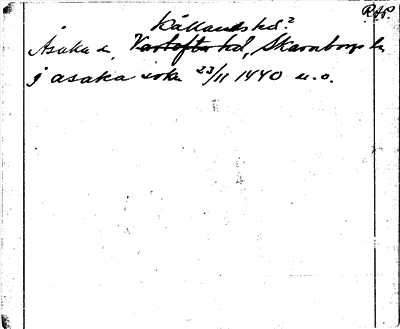 RAP.
Kållands hd?
Åsaka s., Vartofta hd, Skaraborgs l.
j asaka sokn 23/11 1440 u.o.